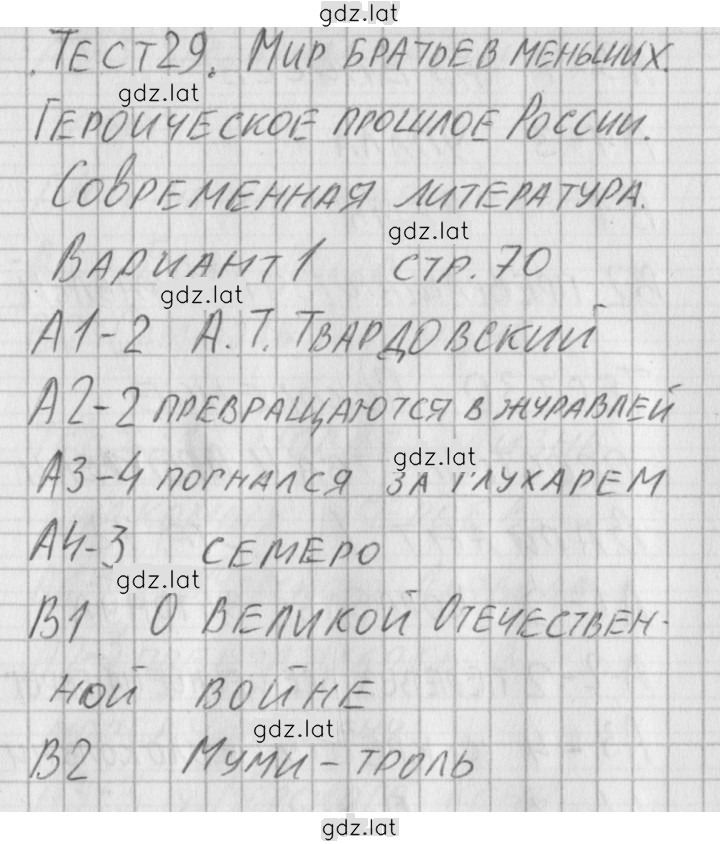 gdz.lat
Тест 29. Мир братьев меньших.
gdz.lat
Героическое прошлое России.
Современная литература.
gdz.lat
Вариант 1 стр. 70
gdz.lat
А1-2 А.Т. Твардовский
А2-2 превращаются в журавлей
gdz.lat
А3-4 погнался за глухарем
А4-3 семеро
gdz.lat
В1 О Великой Отечествен-
ной войне
gdz.lat
В2 Муми-тролль
gdz.lat